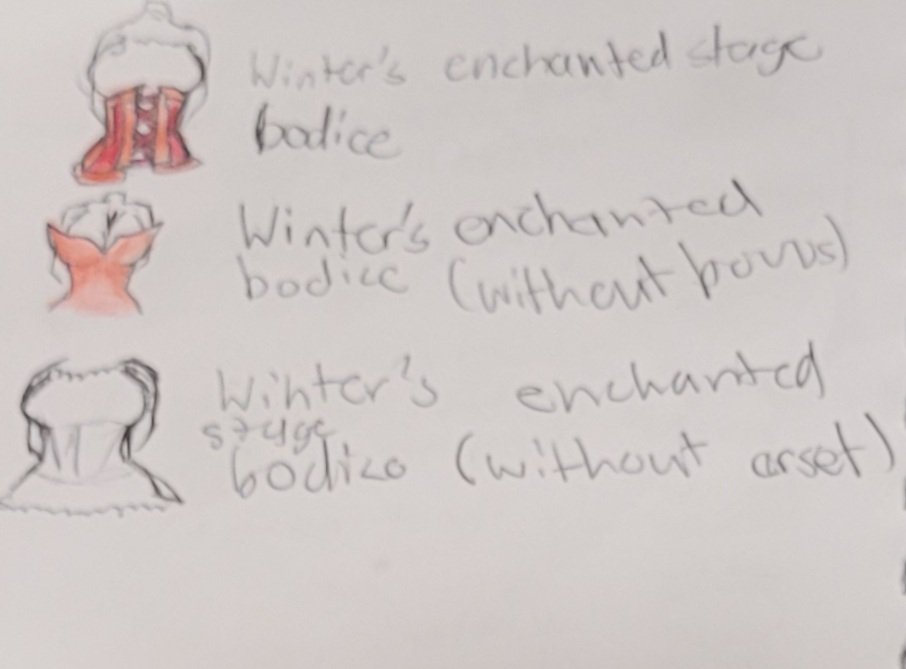 Winter's enchanted stage
bodice
Winter's enchanted
bodice (without bows)
Winter's enchanted
stage
bodice (without arset)